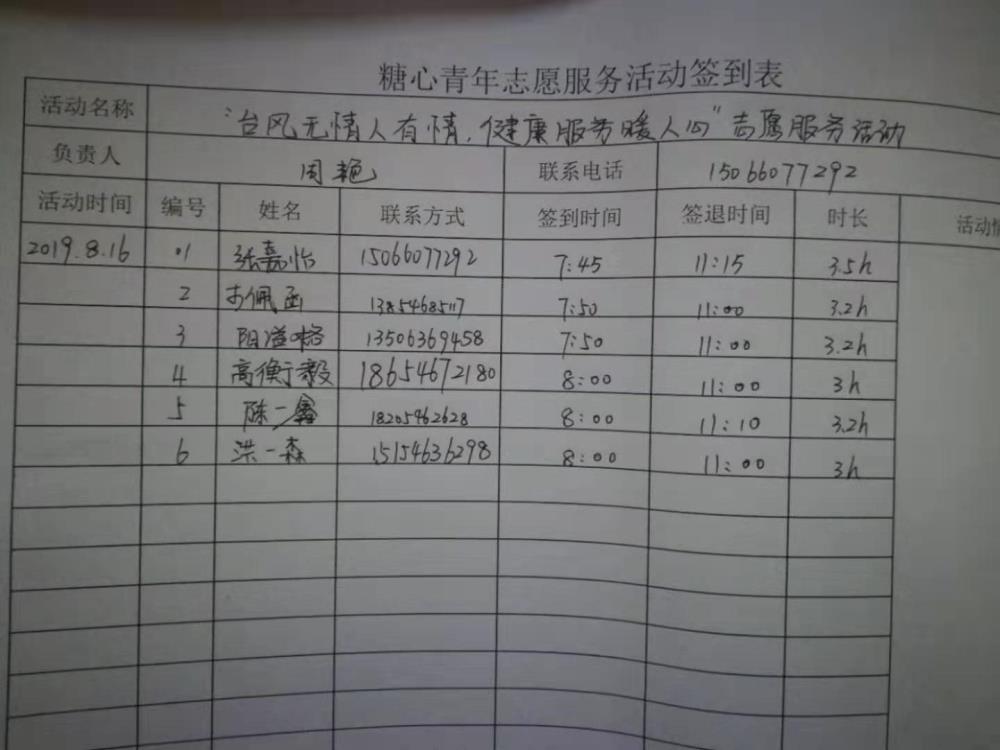 糖心青年志愿服务活动签到表
活动名称 "台风无情人有情,健康服务暖人心"志愿服务活动
负责人 周艳 联系电话 15066077292
活动时间 编号 姓名 联系方式 签到时间 签退时间 时长 活动
2019.8.16 01 张嘉怡 15066077292 7:45 11:15 3.5h
2 佩函 13854685117 7:50 11:00 3.2h
3 13506369458 7:50 11:00 3.2h
4 高衡毅 18654672180 8:00 11:00 3h
5 陈一鑫 18205462628 8:00 11:10 3.2h
6 洪一森 15154636298 8:00 11:00 3h